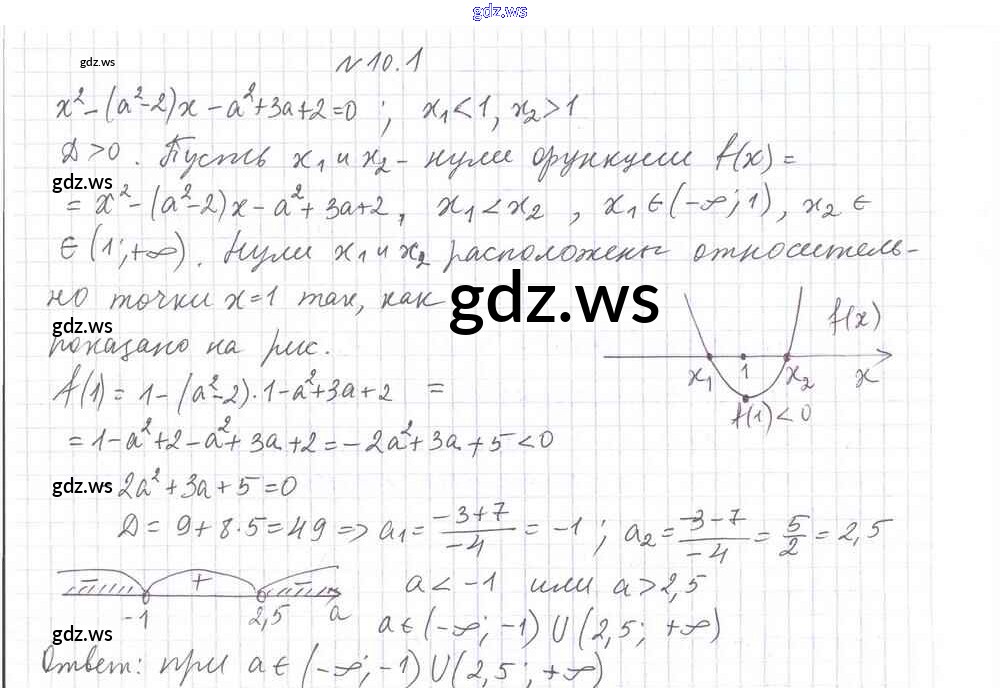 gdz.ws
gdz.ws
№10.1
x² - (a²-2)x - a² + 3a + 2 = 0 ; x₁ < 1, x₂ > 1
Д > 0. Пусть x₁ и x₂ - нули функции f(x) =
gdz.ws
= x² - (a²-2)x - a² + 3a + 2, x₁ < x₂, x₁ ∈ (-∞; 1), x₂ ∈
∈ (1; +∞). Нули x₁ и x₂ расположены относитель-
но точки x=1 так, как
gdz.ws
gdz.ws
показано на рис.
f(x)
x₁ 1 x₂ x
f(1) < 0
f(1) = 1 - (a²-2)·1 - a² + 3a + 2 =
= 1 - a² + 2 - a² + 3a + 2 = -2a² + 3a + 5 < 0
gdz.ws
2a² + 3a + 5 = 0
Д = 9 + 8·5 = 49 => a₁ = (-3+7)/(-4) = -1 ; a₂ = (-3-7)/(-4) = 5/2 = 2,5
- + -
-1 2,5 a
a < -1 или a > 2,5
a ∈ (-∞; -1) U (2,5; +∞)
gdz.ws
Ответ: при a ∈ (-∞; -1) U (2,5; +∞)